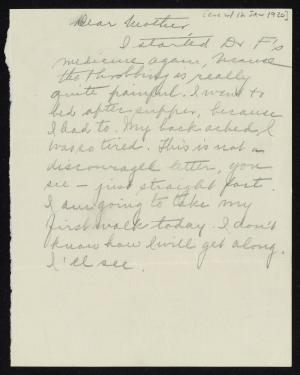 Dear Mother
I started Dr F's
medicine again, because
the throbbing is really
quite painful. I went to
bed after supper, because
I had to. My back ached, I
was so tired. This is not a
discouraged letter, you
see – just straight fact.
I am going to take my
first walk today. I don't
know how I will get along.
I'll see.